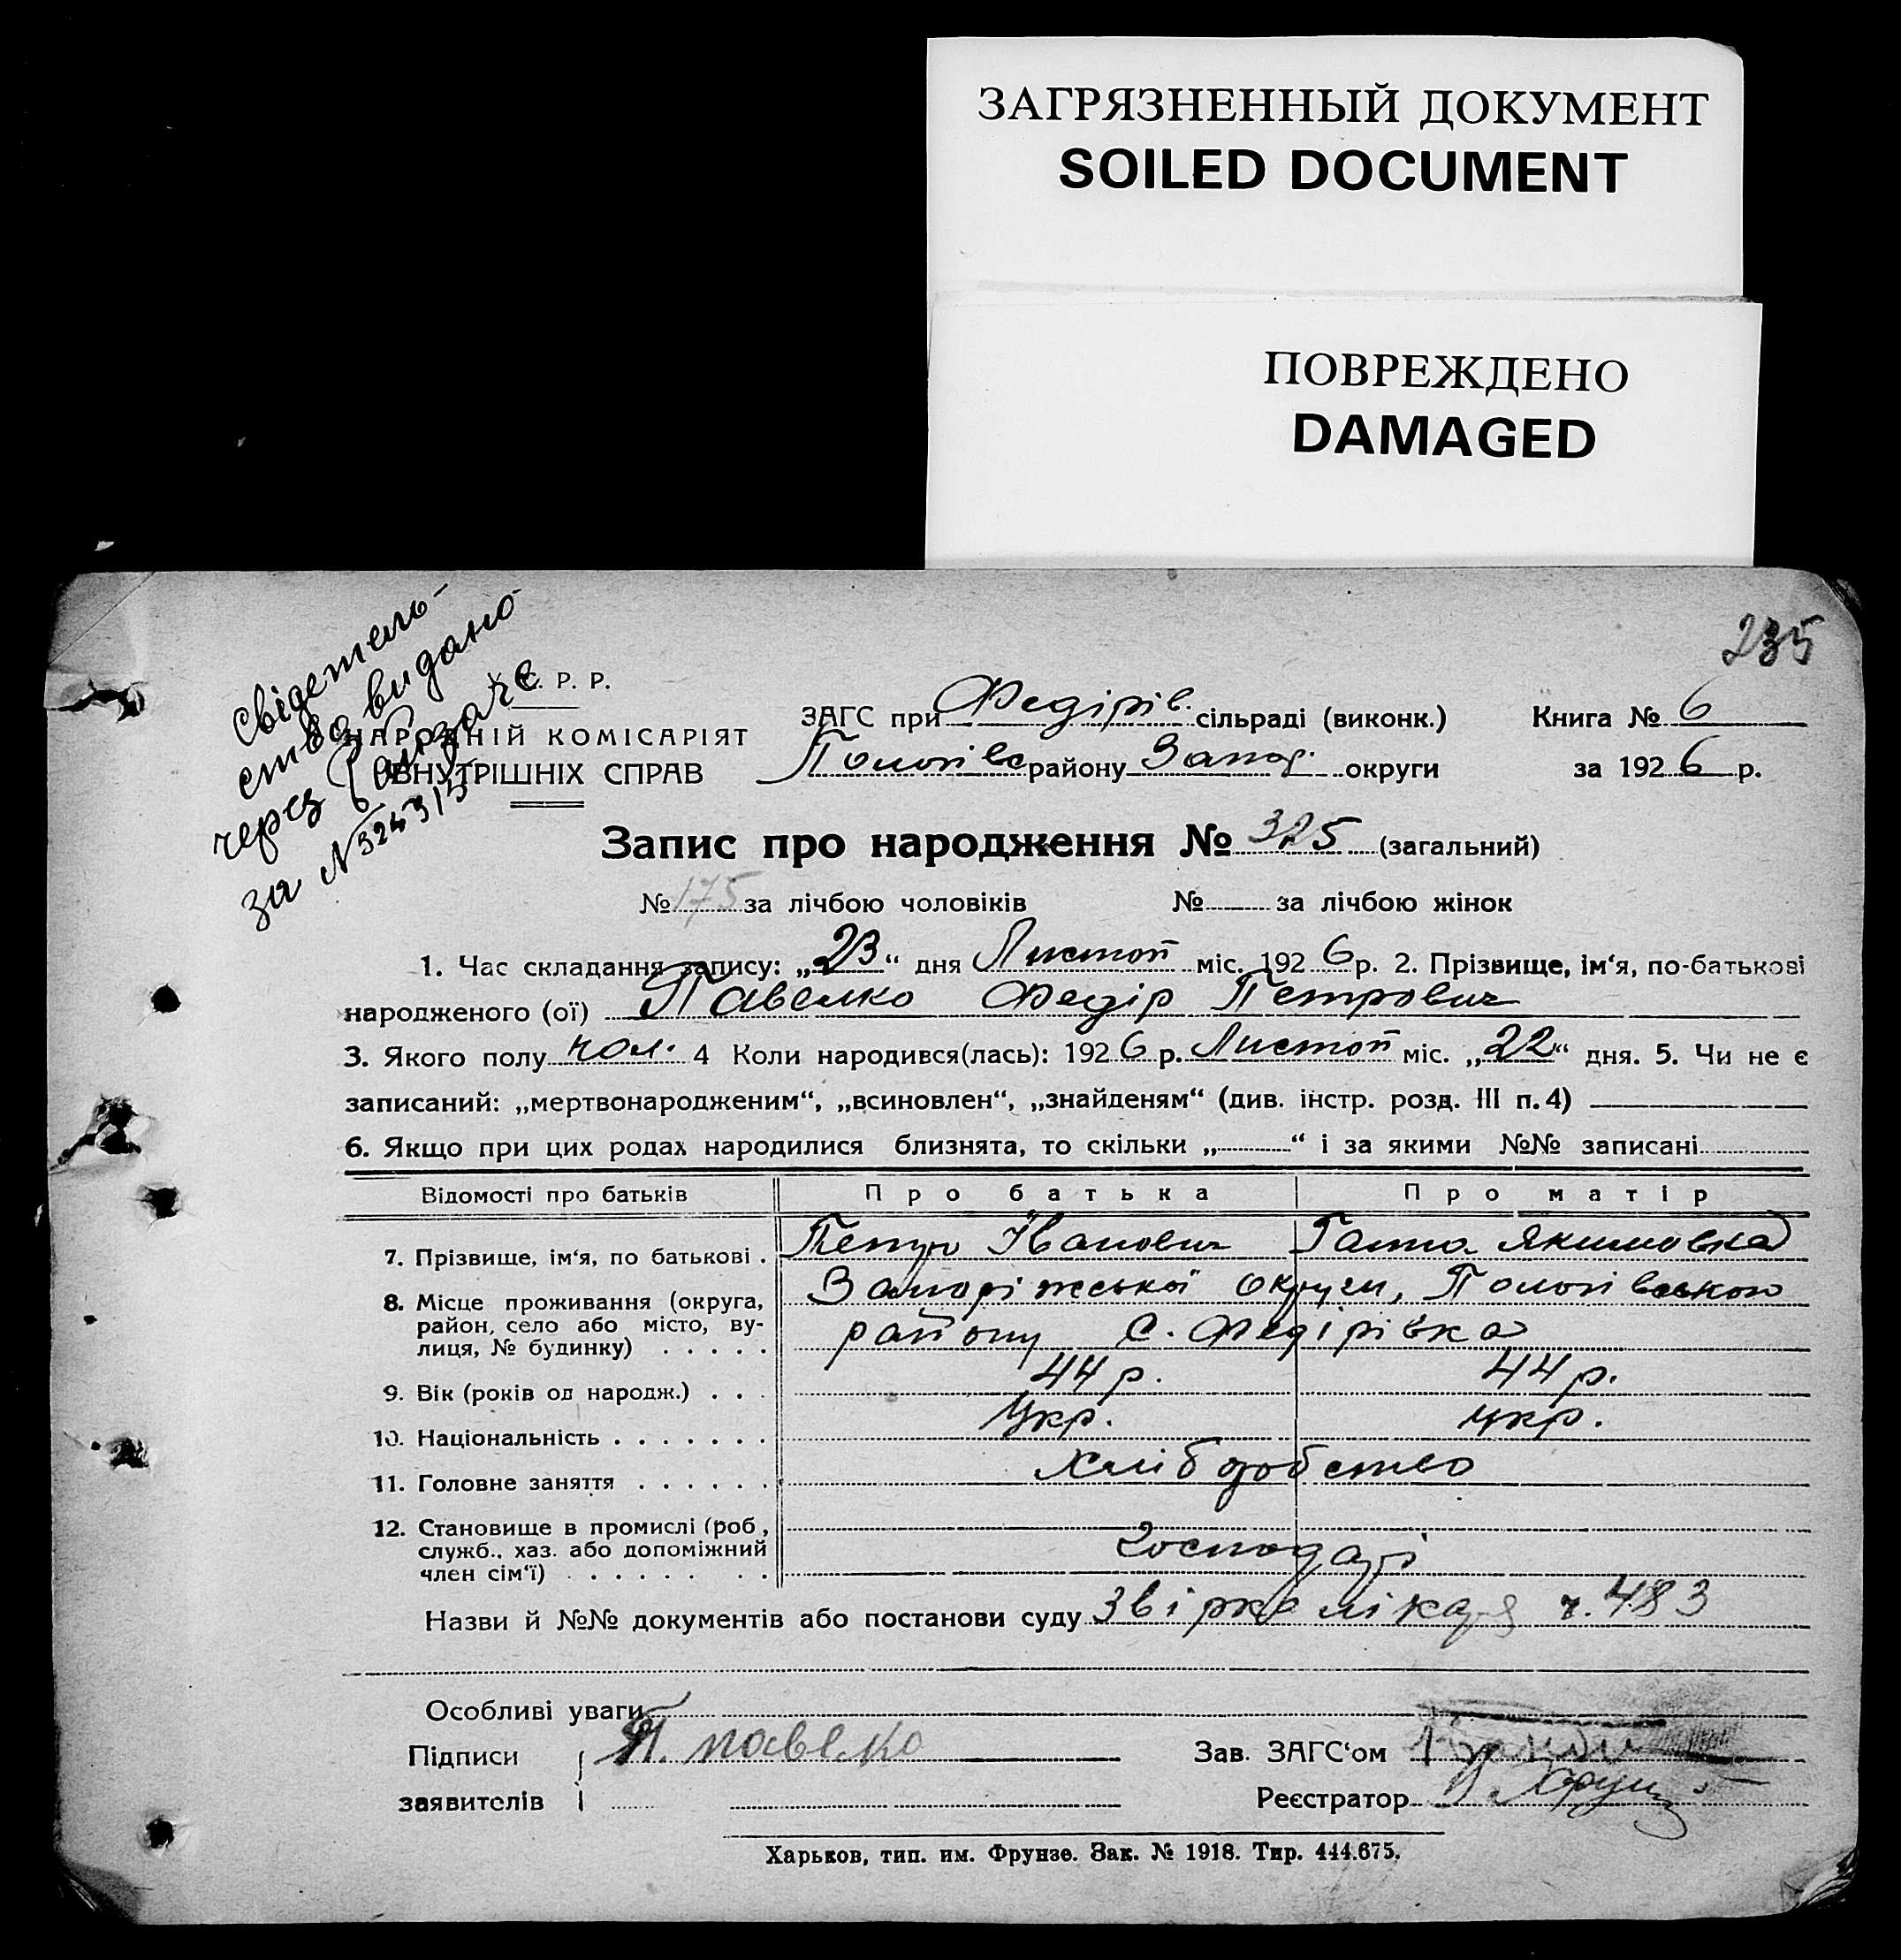 ЗАГРЯЗНЕННЫЙ ДОКУМЕНТ
SOILED DOCUMENT
ПОВРЕЖДЕНО
DAMAGED
235
Свідетель-
ство видано
через
за № 524315
У. С. Р. Р.
НАРОДНІЙ КОМІСАРІЯТ
ВНУТРІШНІХ СПРАВ
ЗАГС при Федірів. сільраді (виконк.) Книга № 6
Пологівс району Запор. округи за 1926 р.
Запис про народження № 325 (загальний)
№ 175 за лічбою чоловіків № за лічбою жінок
1. Час складання запису: „23“ дня Листоп міс. 1926 р. 2. Прізвище, ім‘я, по-батькові
народженого (ої) Павелко Федір Петрович
3. Якого полу чол. 4 Коли народився(лась): 1926 р. Листоп міс. „22“ дня. 5. Чи не є
записаний: „мертвонародженим“, „всиновлен“, „знайденям“ (див. інстр. розд. III п. 4)
6. Якщо при цих родах народилися близнята, то скільки „ “ і за якими №№ записані
Відомості про батьків Про батька Про матір
7. Прізвище, ім‘я, по батькові . Петро Іванович Ганна Якимовна
8. Місце проживання (округа, Запоріжської округи, Пологівського
район, село або місто, ву- району с. Федірівка
лиця, № будинку) . . . . .
9. Вік (років од народж.) . . . 44 р. 44 р.
10. Національність . . . . . . . Укр. укр.
11. Головне заняття . . . . . . Хліборобство
12. Становище в промислі (роб.,
служб., хаз. або допоміжний господарі
член сім‘ї) . . . . . . . .
Назви й №№ документів або постанови суду Звірка лікаря ч. 483
Особливі уваги
Підписи П. павелко Зав. ЗАГС‘ом
заявителів Реєстратор
Харьков, тип. им. Фрунзе. Зак. № 1918. Тир. 444.675.